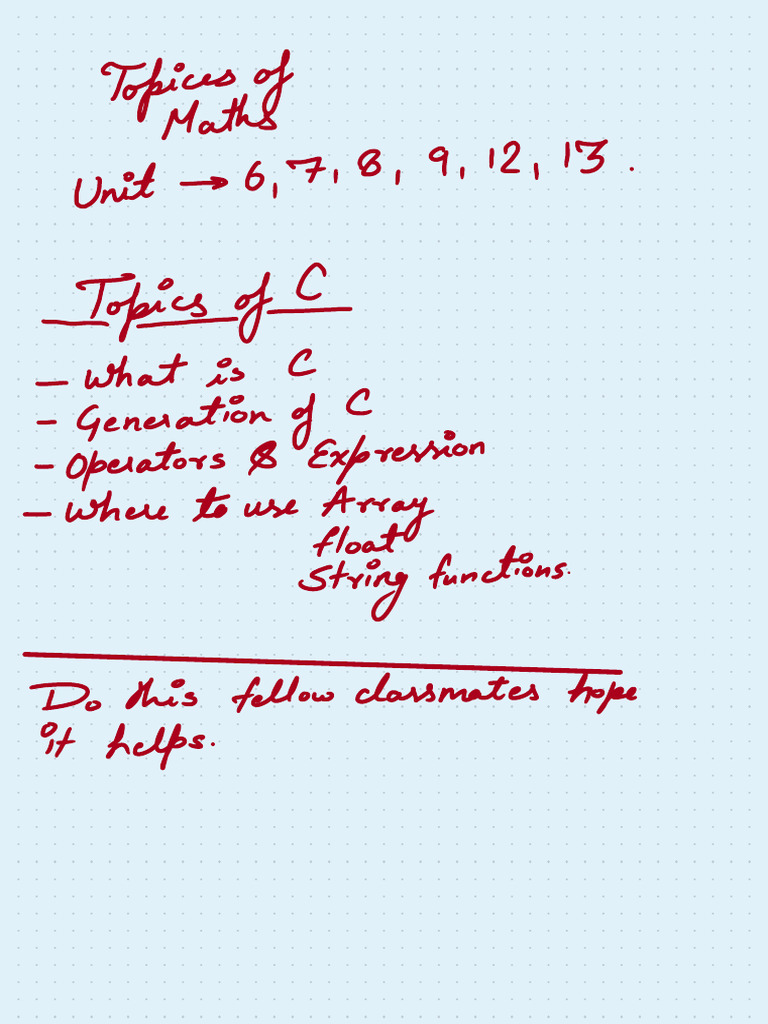 Topices of
Maths
Unit → 6, 7, 8, 9, 12, 13.
Topics of C
- What is C
- Generation of C
- Operators & Expression
- Where to use Array
float
String functions.
Do this fellow classmates hope
it helps.